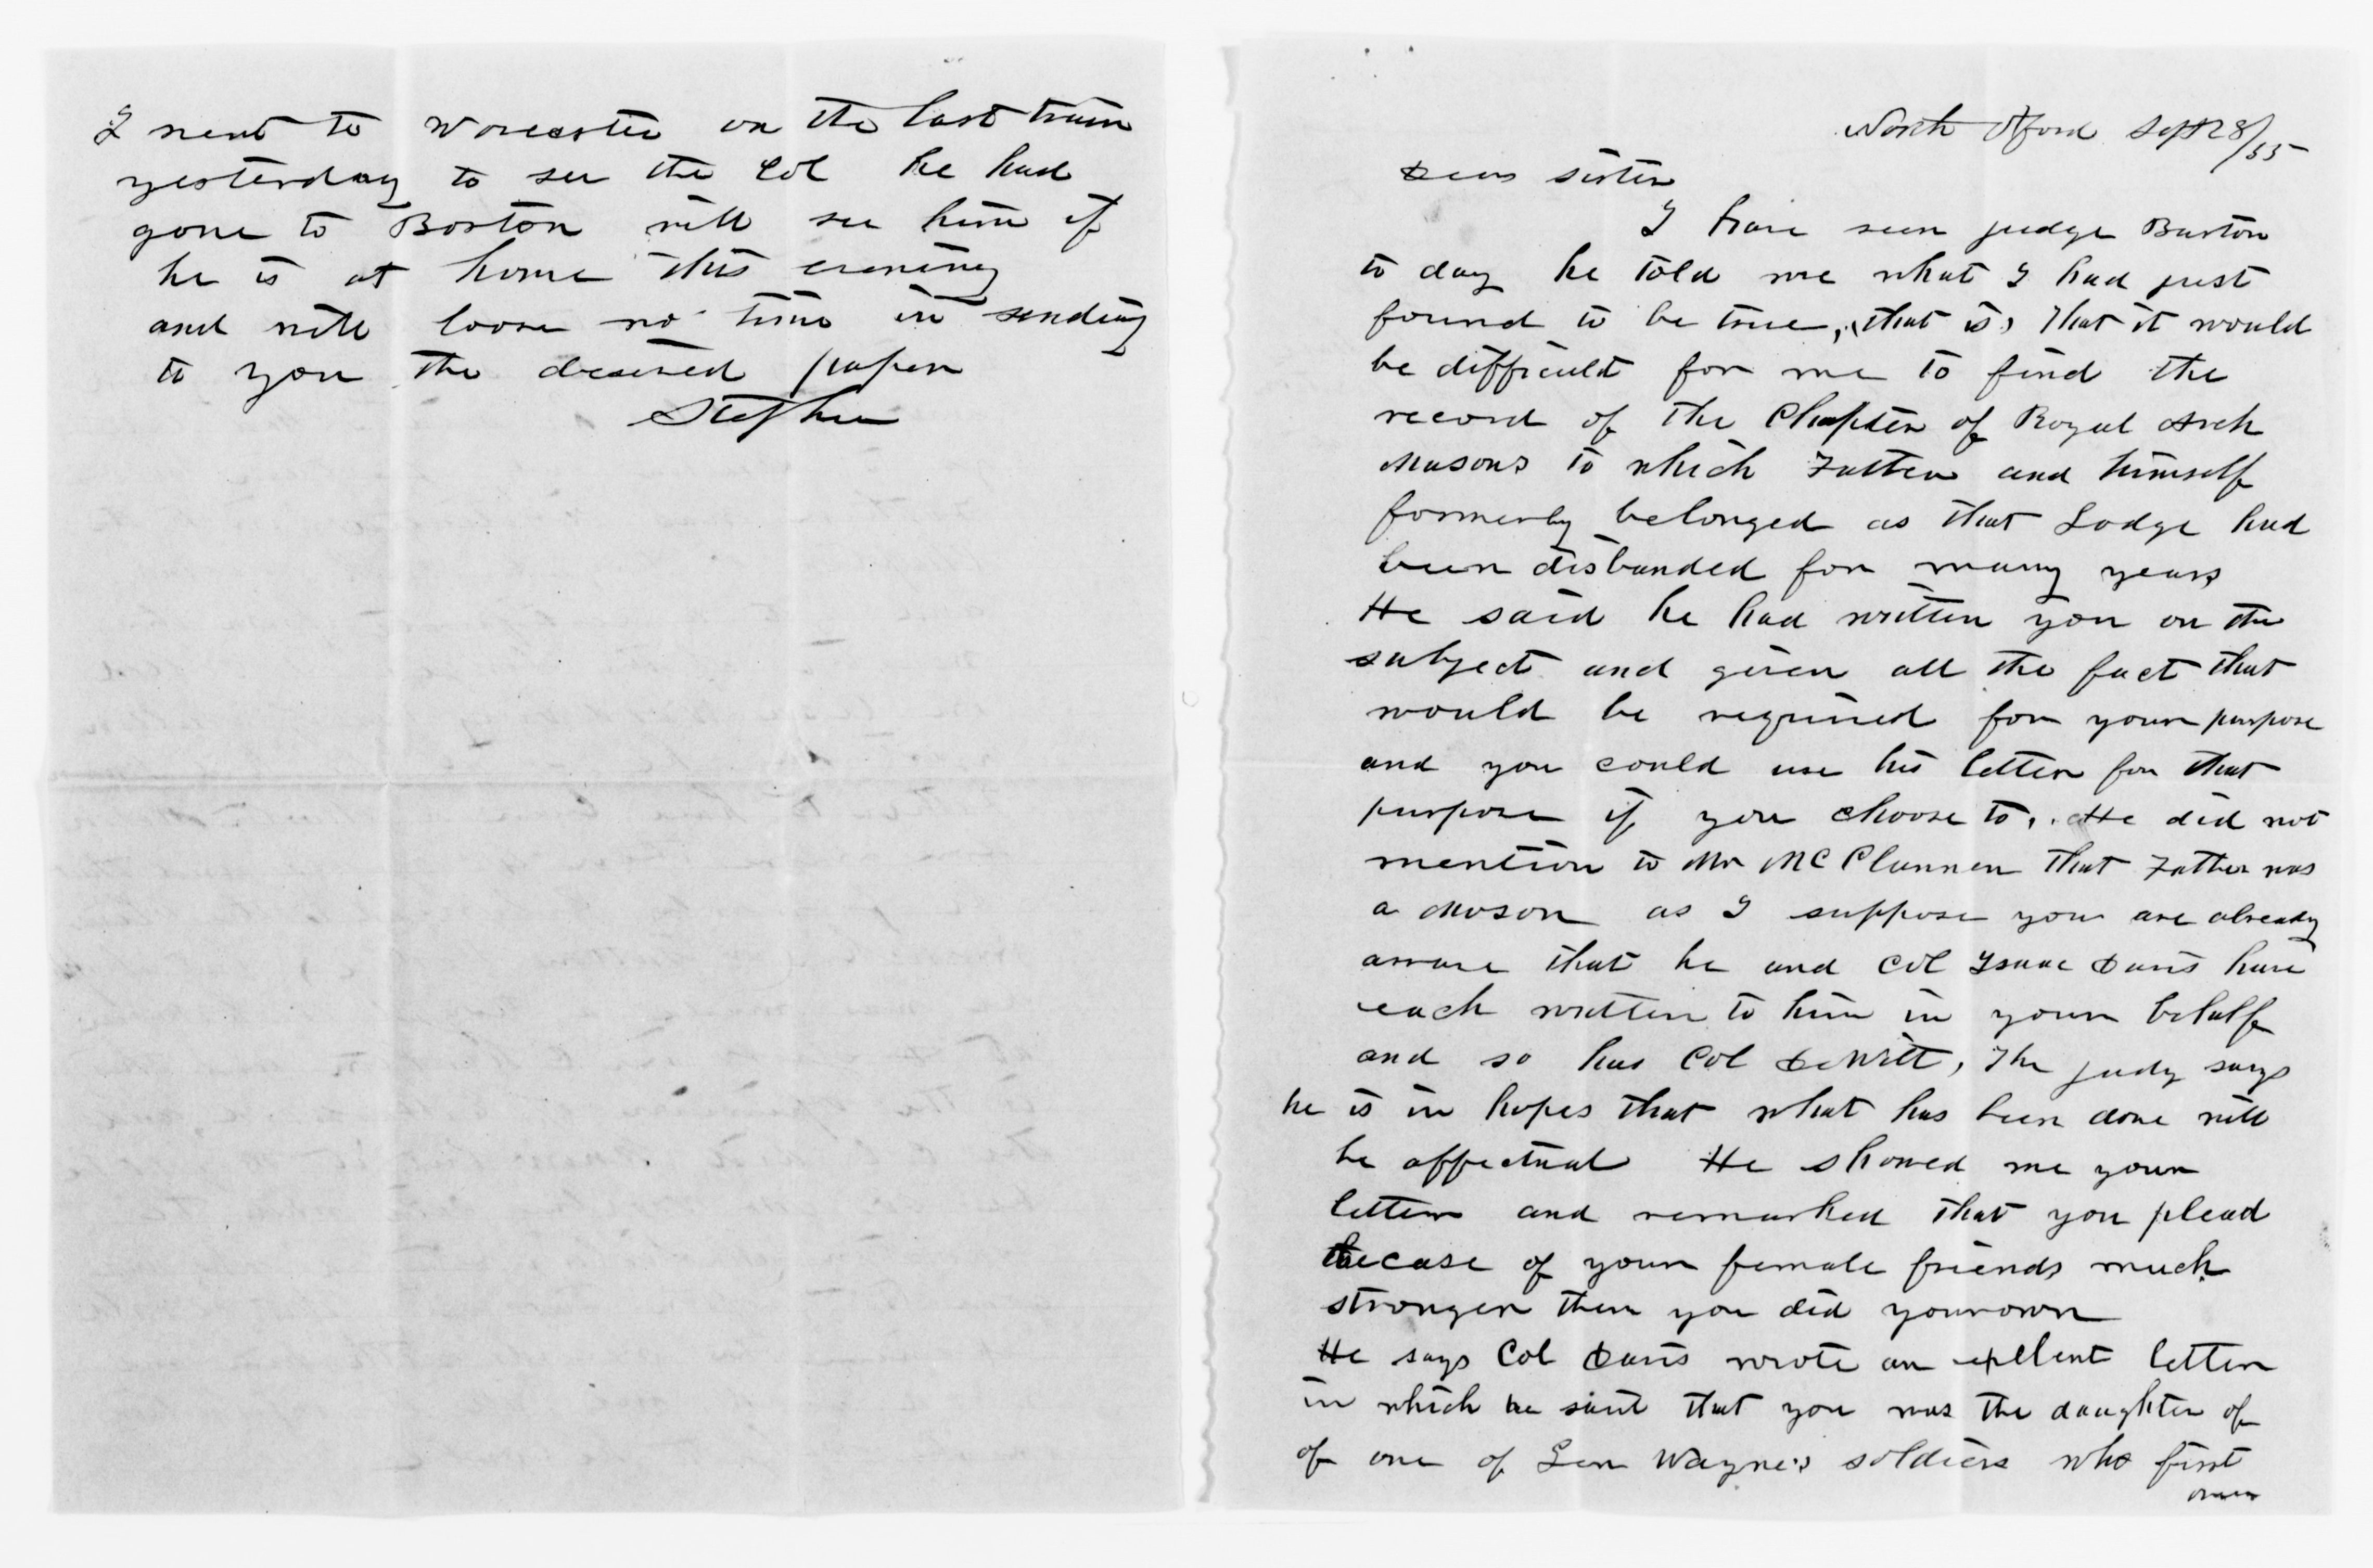 I went to Worcester on the last train
yesterday to see the Col he had
gone to Boston will see him if
he is at home this evening
and will loose no time in sending
to you the desired paper
Stephen
North Oxford Sept 28/55
Dear sister
I have seen judge Barton
to day he told me what I had just
found to be true, that is, that it would
be difficult for me to find the
record of the Chapter of Royal Arch
Masons to which Father and himself
formerly belonged as that Lodge had
been disbanded for many years
He said he had written you on the
subject and given all the fact that
would be required for your purpose
and you could use his letter for that
purpose if you choose to, He did not
mention to Mr McClannen that Father was
a Mason as I suppose you are already
aware that he and Col Isaac Davis have
each written to him in your behalf
and so has Col DeWitt, The judg says
he is in hopes that what has been done will
be affectual He showed me your
letter and remarked that you plead
the case of your female friends much
stronger then you did your own
He says Col Davis wrote an exllent letter
in which he said that you was the daughter of
of one of Gen Wayne's soldiers who first